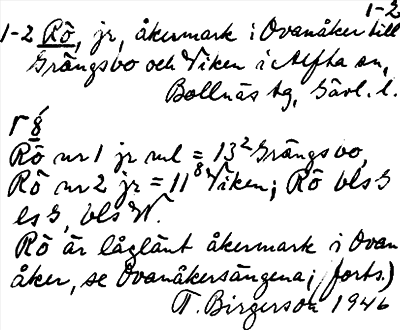 1-2
1-2 Rö, jr, åkermark i Ovanåker till
Grängsbo och Viken i Alfta sn,
Bollnäs tg, Gävl. l.
Rö nr 1 jr ml = 13² Grängsbo,
Rö nr 2 jr = 11⁸ Viken; Rö bls G
ls G, bls W.
Rö är låglänt åkermark i Ovan
åker, se Ovanåkersängena; forts.)
T. Birgerson 1946